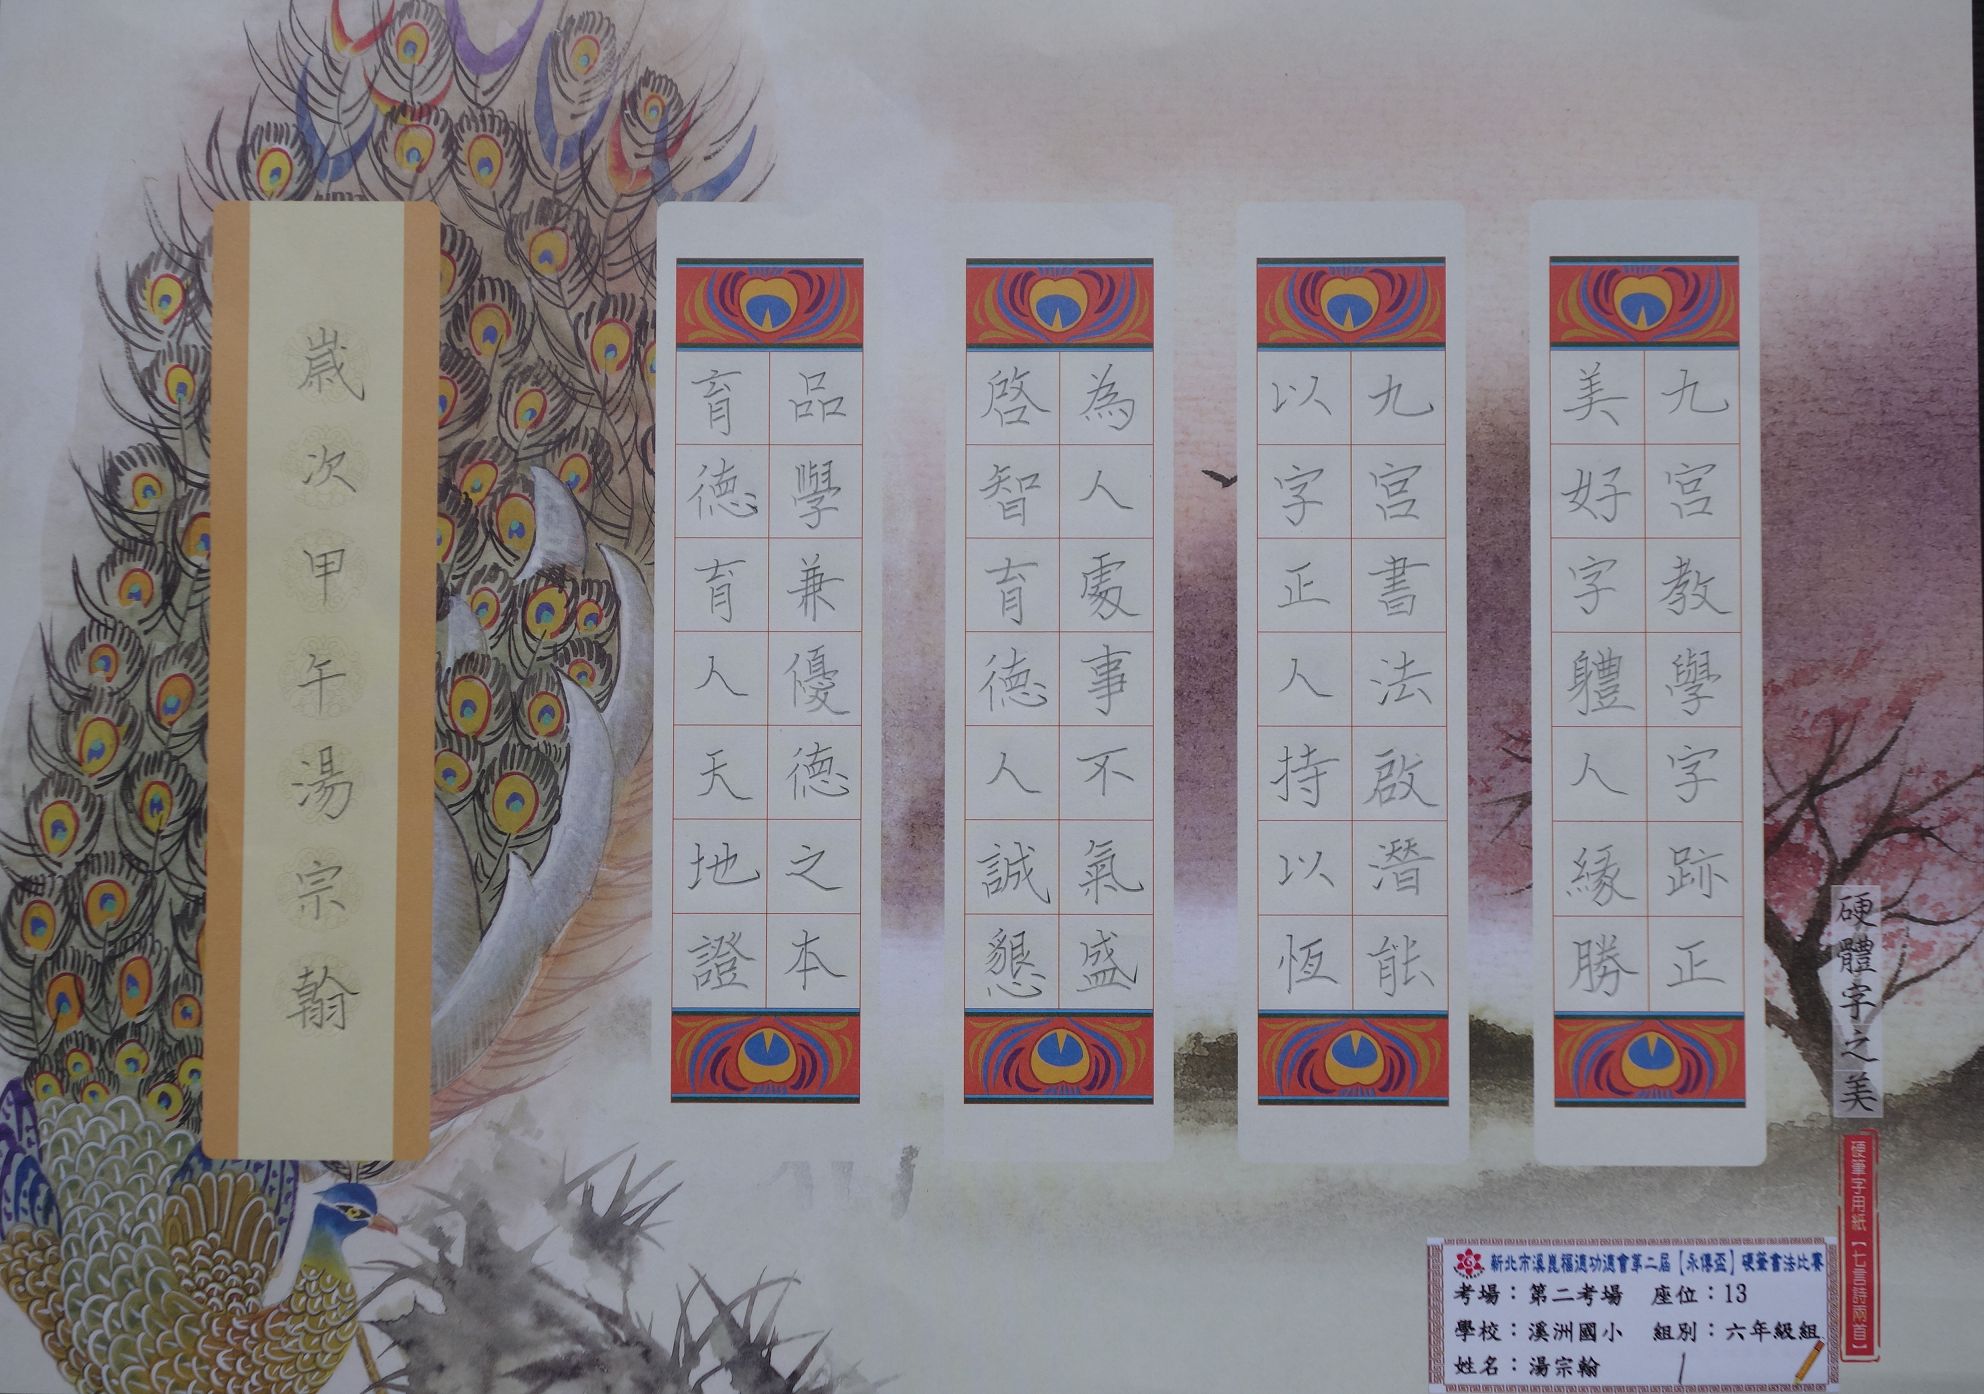 九宮教學字跡正
美好字軆人緣勝
九宮書法啟潛能
以字正人持以恆
為人處事不氣盛
啓智育德人誠懇
品學兼優德之本
育德育人天地證
歲次甲午湯宗翰
硬體字之美
硬筆字用紙【七言詩兩首】
新北市溪崑福德功德會第二屆【永傳盃】硬筆書法比賽
考場：第二考場 座位：13
學校：溪洲國小 組別：六年級組
姓名：湯宗翰 1